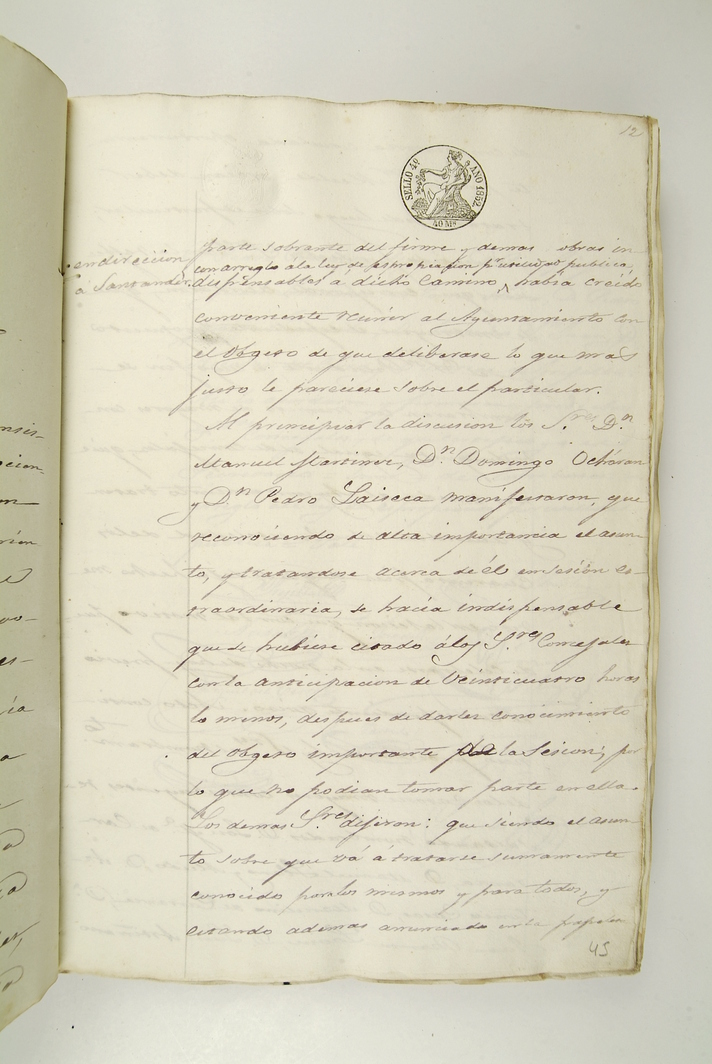 12
SELLO 4º AÑO 1852.
40 Ms
en direccion
á Santander,
parte sobrante del firme y demas obras in
con arreglo á la ley de espropiacion pr. utilidad publica,
dispensables a dicho Camino, habia creido
conveniente reunir al Ayuntamiento con
el Obgeto de que deliberase lo que mas
justo le pareciese sobre el particular.
Al principiar la discusion los S.res D.n
Manuel Martinez, D.n Domingo Ochāran
y D.n Pedro Laiseca manifestaron, que
reconociendo de alta importancia el asun-
to, y tratandose acerca de él en sesión es-
traordinaria, se hacia indispensable
que se hubiese citado á los S.res Concejales
con la anticipacion de Veinticuatro horas
lo menos, despues de darles conocimiento
del Obgeto importante de la Sesion; por
lo que no podian tomar parte en ella.
Los demas S.res dijeron: que siendo el asun-
to sobre que vá á tratarse sumamente
conocido por los mismos y para todos, y
estando ademas anunciado en la papele
45